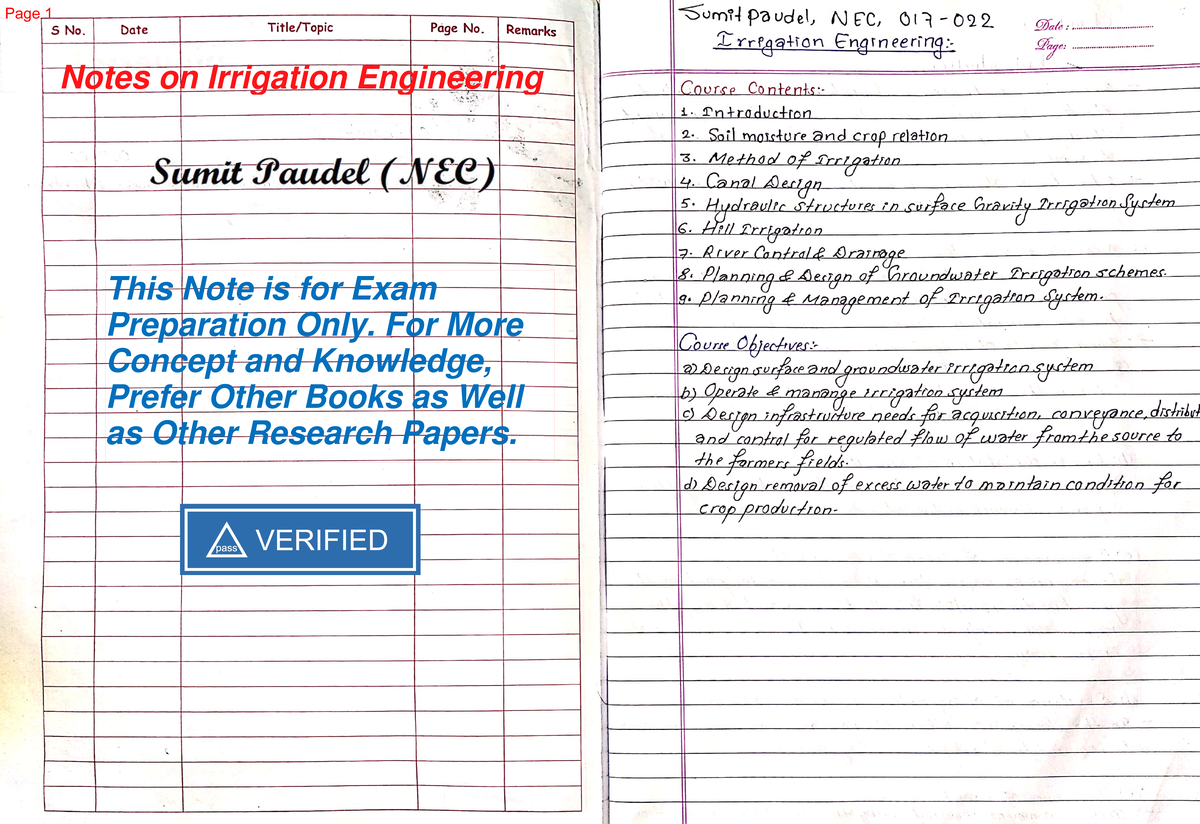 Page 1
S No. Date Title/Topic Page No. Remarks
Notes on Irrigation Engineering
Sumit Paudel (NEC)
This Note is for Exam
Preparation Only. For More
Concept and Knowledge,
Prefer Other Books as Well
as Other Research Papers.
pass VERIFIED
Sumit Paudel, NEC, 017-022
Irrigation Engineering:-
Date :
Page:
Course Contents:-
1. Introduction
2. Soil moisture and crop relation
3. Method of Irrigation
4. Canal Design
5. Hydraulic Structures in surface Gravity Irrigation System
6. Hill Irrigation
7. River Control & Drainage
8. Planning & Design of Groundwater Irrigation schemes.
9. Planning & Management of Irrigation System.
Course Objectives:-
a) Design surface and groundwater irrigation system
b) Operate & manange irrigation system
c) Design infrastructure needs for acquisition, conveyance, distribut
and control for regulated flow of water from the source to
the farmers fields.
d) Design removal of excess water to maintain condition for
crop production.